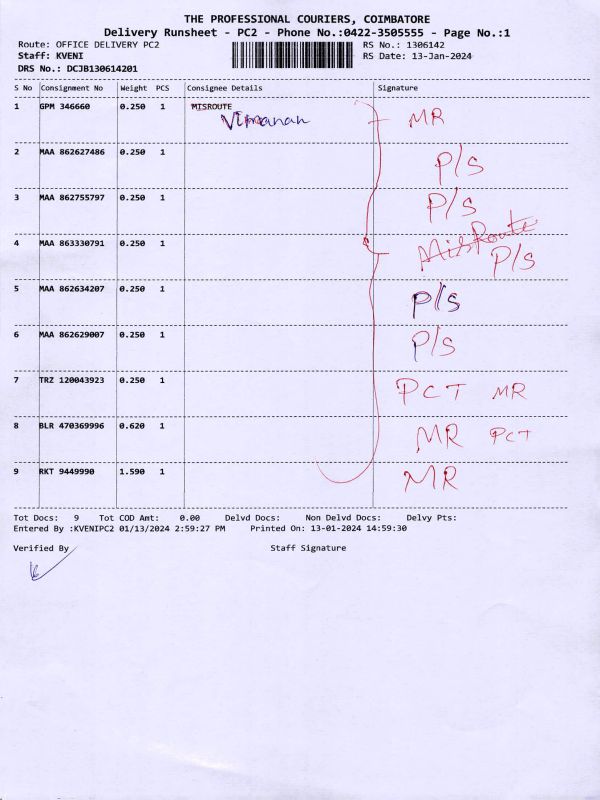 THE PROFESSIONAL COURIERS, COIMBATORE
Delivery Runsheet - PC2 - Phone No.:0422-3505555 - Page No.:1
Route: OFFICE DELIVERY PC2 RS No.: 1306142
Staff: KVENI RS Date: 13-Jan-2024
DRS No.: DCJB130614201
S No Consignment No Weight PCS Consignee Details Signature
1 GPM 346660 0.250 1 MISROUTE MR
2 MAA 862627486 0.250 1 P/S
3 MAA 862755797 0.250 1 P/S
4 MAA 863330791 0.250 1 MisRoute P/S
5 MAA 862634207 0.250 1 P/S
6 MAA 862629007 0.250 1 P/S
7 TRZ 120043923 0.250 1 PCT MR
8 BLR 470369996 0.620 1 MR PCT
9 RKT 9449990 1.590 1 MR
Tot Docs: 9 Tot COD Amt: 0.00 Delvd Docs: Non Delvd Docs: Delvy Pts:
Entered By :KVENIPC2 01/13/2024 2:59:27 PM Printed On: 13-01-2024 14:59:30
Verified By Staff Signature